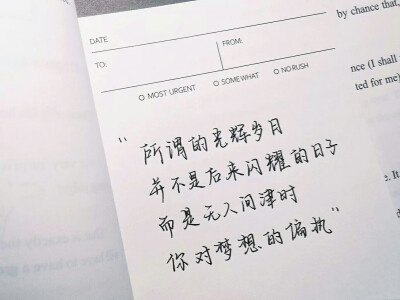 by chance that,
DATE
TO:
FROM:
nce (I shall
ted for me)
○ MOST URGENT ○ SOMEWHAT ○ NO RUSH
“所谓的光辉岁月
并不是后来闪耀的日子
而是无人问津时
你对梦想的偏执”
e. It